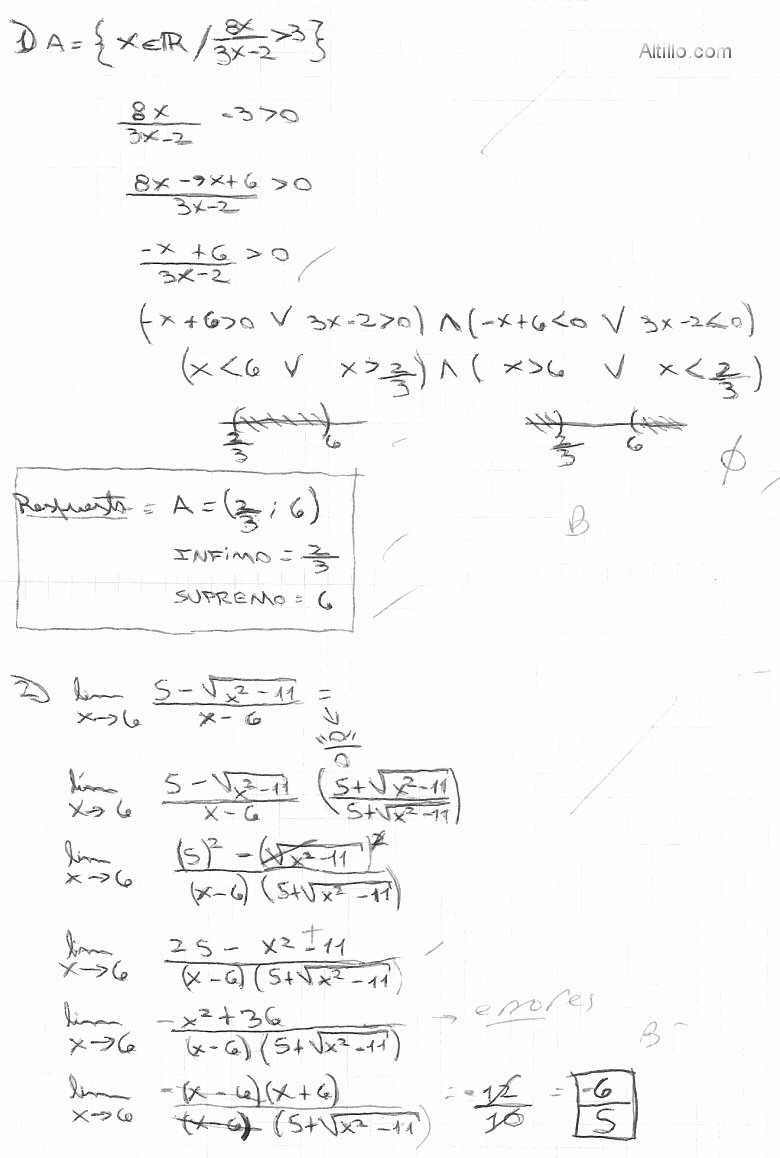 1) A = { x ∈ R / 8x/(3x-2) > 3 }
Altillo.com
8x/(3x-2) -3 > 0
(8x - 9x + 6)/(3x-2) > 0
(-x + 6)/(3x-2) > 0
(-x + 6 > 0 ∨ 3x-2 > 0) ∧ (-x + 6 < 0 ∨ 3x-2 < 0)
(x < 6 ∨ x > 2/3) ∧ ( x > 6 ∨ x < 2/3 )
2/3 6 2/3 6 ∅
Respuesta = A = (2/3 ; 6)
B
INFIMO = 2/3
SUPREMO = 6
2) lim x→6 (5 - √(x² - 11))/(x - 6) =
↓
"0"/0
lim x→6 (5 - √(x² - 11))/(x - 6) ((5 + √(x² - 11))/(5 + √(x² - 11)))
lim x→6 ((5)² - (√(x² - 11))²)/((x - 6) (5 + √(x² - 11)))
lim x→6 (25 - x² + 11)/((x - 6) (5 + √(x² - 11)))
lim x→6 (-x² + 36)/((x - 6) (5 + √(x² - 11))) → errores
B-
lim x→6 (-(x - 6)(x + 6))/((x - 6) (5 + √(x² - 11))) = -12/10 = -6/5